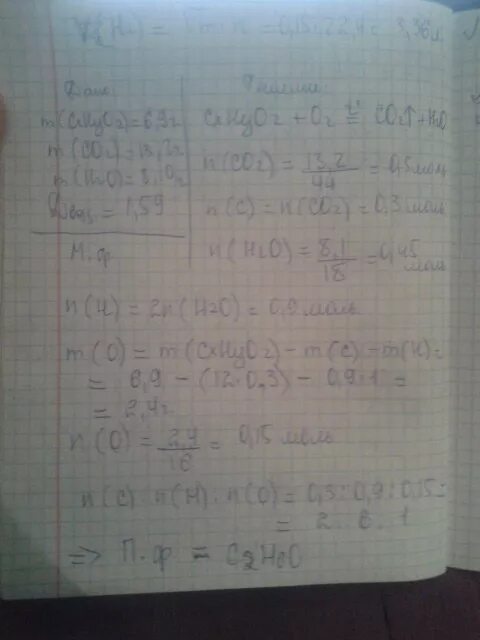 V(H₂) = Vm·n = 0,15·22,4 = 3,36л
Дано:
m(CxHyOz) = 6,9г
m(CO₂) = 13,2г
m(H₂O) = 8,10г
Dвоз = 1,59
М.ф
Решение:
CxHyOz + O₂ = CO₂↑ + H₂O
n(CO₂) = 13,2/44 = 0,3моль
n(C) = n(CO₂) = 0,3моль
n(H₂O) = 8,1/18 = 0,45 моль
n(H) = 2n(H₂O) = 0,9 моль
m(O) = m(CxHyOz) – m(C) – m(H) =
= 6,9 – (12·0,3) – 0,9·1 =
= 2,4г
n(O) = 2,4/16 = 0,15 моль
n(C) : n(H) : n(O) = 0,3 : 0,9 : 0,15 =
= 2 : 6 : 1
=> П.ф = C₂H₆O